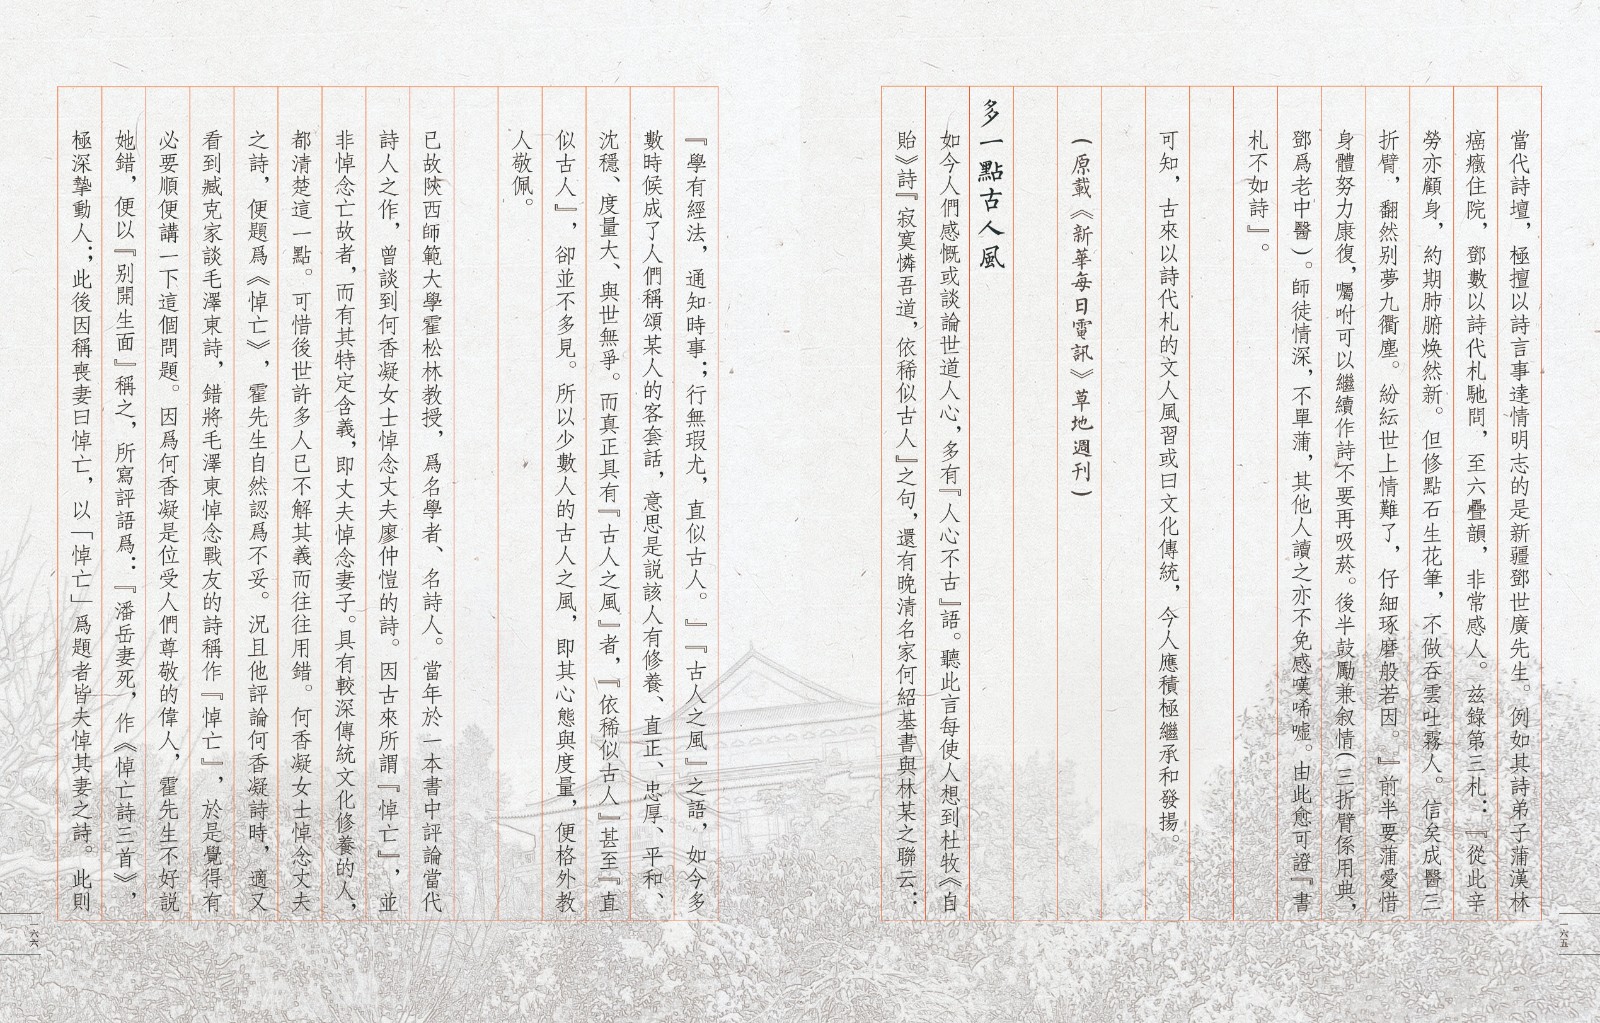 當代詩壇，極擅以詩言事達情明志的是新疆鄧世廣先生。例如其詩弟子蒲漢林
癌癥住院，鄧數以詩代札馳問，至六疊韻，非常感人。茲錄第三札：『從此辛
勞亦顧身，約期肺腑煥然新。但修點石生花筆，不做吞雲吐霧人。信矣成醫三
折臂，翻然别夢九衢塵。紛紜世上情難了，仔細琢磨般若因。』前半要蒲愛惜
身體努力康復，囑咐可以繼續作詩不要再吸菸。後半鼓勵兼叙情（三折臂係用典，
鄧爲老中醫）。師徒情深，不單蒲，其他人讀之亦不免感嘆唏噓。由此愈可證『書
札不如詩』。
可知，古來以詩代札的文人風習或曰文化傳統，今人應積極繼承和發揚。
（原載《新華每日電訊》草地週刊）
多一點古人風
如今人們感慨或談論世道人心，多有『人心不古』語。聽此言每使人想到杜牧《自
貽》詩『寂寞憐吾道，依稀似古人』之句，還有晚清名家何紹基書與林某之聯云：
一六五
『學有經法，通知時事；行無瑕尤，直似古人。』『古人之風』之語，如今多
數時候成了人們稱頌某人的客套話，意思是説該人有修養、直正、忠厚、平和、
沈穩、度量大、與世無爭。而真正具有『古人之風』者，『依稀似古人』甚至『直
似古人』，卻並不多見。所以少數人的古人之風，即其心態與度量，便格外教
人敬佩。
已故陝西師範大學霍松林教授，爲名學者、名詩人。當年於一本書中評論當代
詩人之作，曾談到何香凝女士悼念丈夫廖仲愷的詩。因古來所謂『悼亡』，並
非悼念亡故者，而有其特定含義，即丈夫悼念妻子。具有較深傳統文化修養的人，
都清楚這一點。可惜後世許多人已不解其義而往往用錯。何香凝女士悼念丈夫
之詩，便題爲《悼亡》，霍先生自然認爲不妥。況且他評論何香凝詩時，適又
看到臧克家談毛澤東詩，錯將毛澤東悼念戰友的詩稱作『悼亡』，於是覺得有
必要順便講一下這個問題。因爲何香凝是位受人們尊敬的偉人，霍先生不好説
她錯，便以『别開生面』稱之，所寫評語爲：『潘岳妻死，作《悼亡詩三首》，
極深摯動人；此後因稱喪妻曰悼亡，以「悼亡」爲題者皆夫悼其妻之詩。此則
一六六